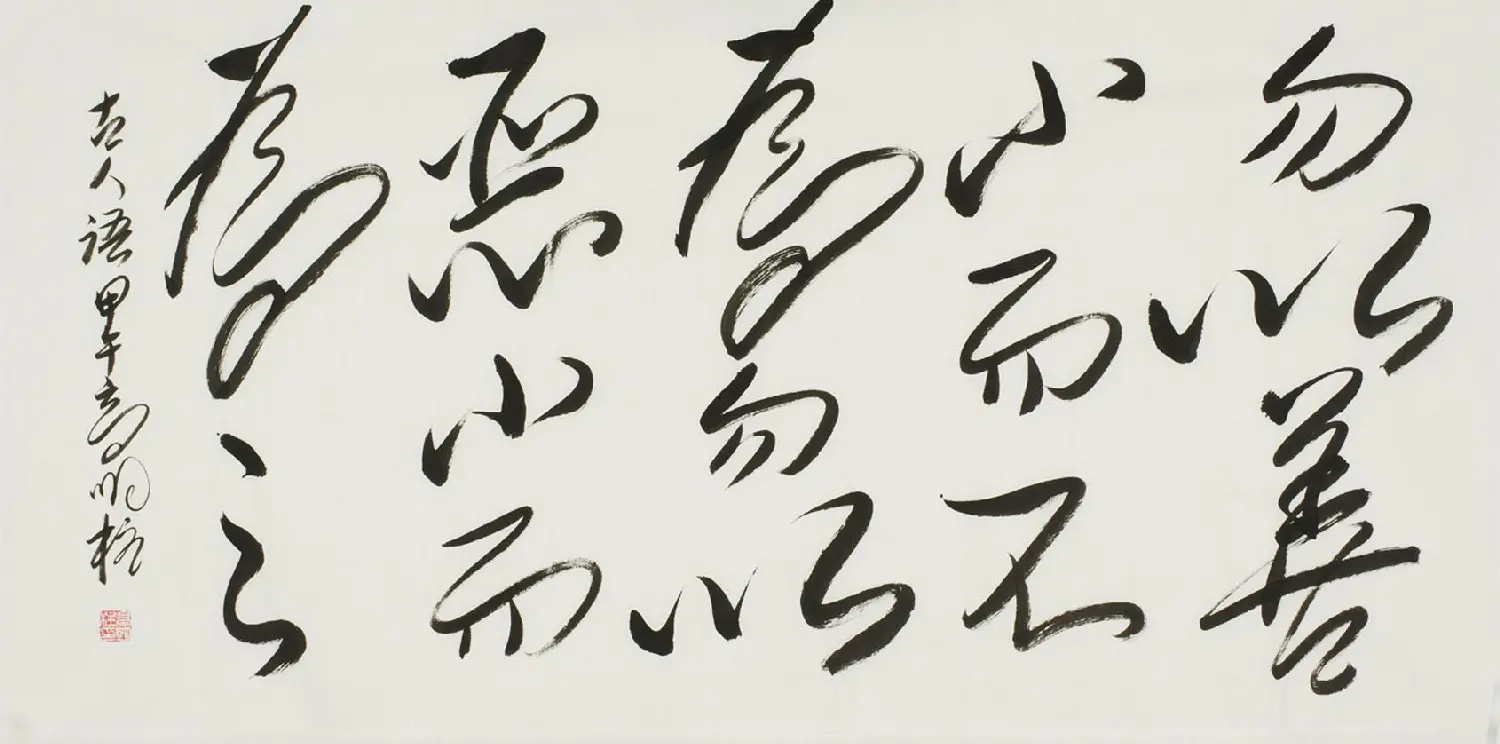 勿以善
小而不
為勿以
惡小而
為之
古人語甲午高明柱